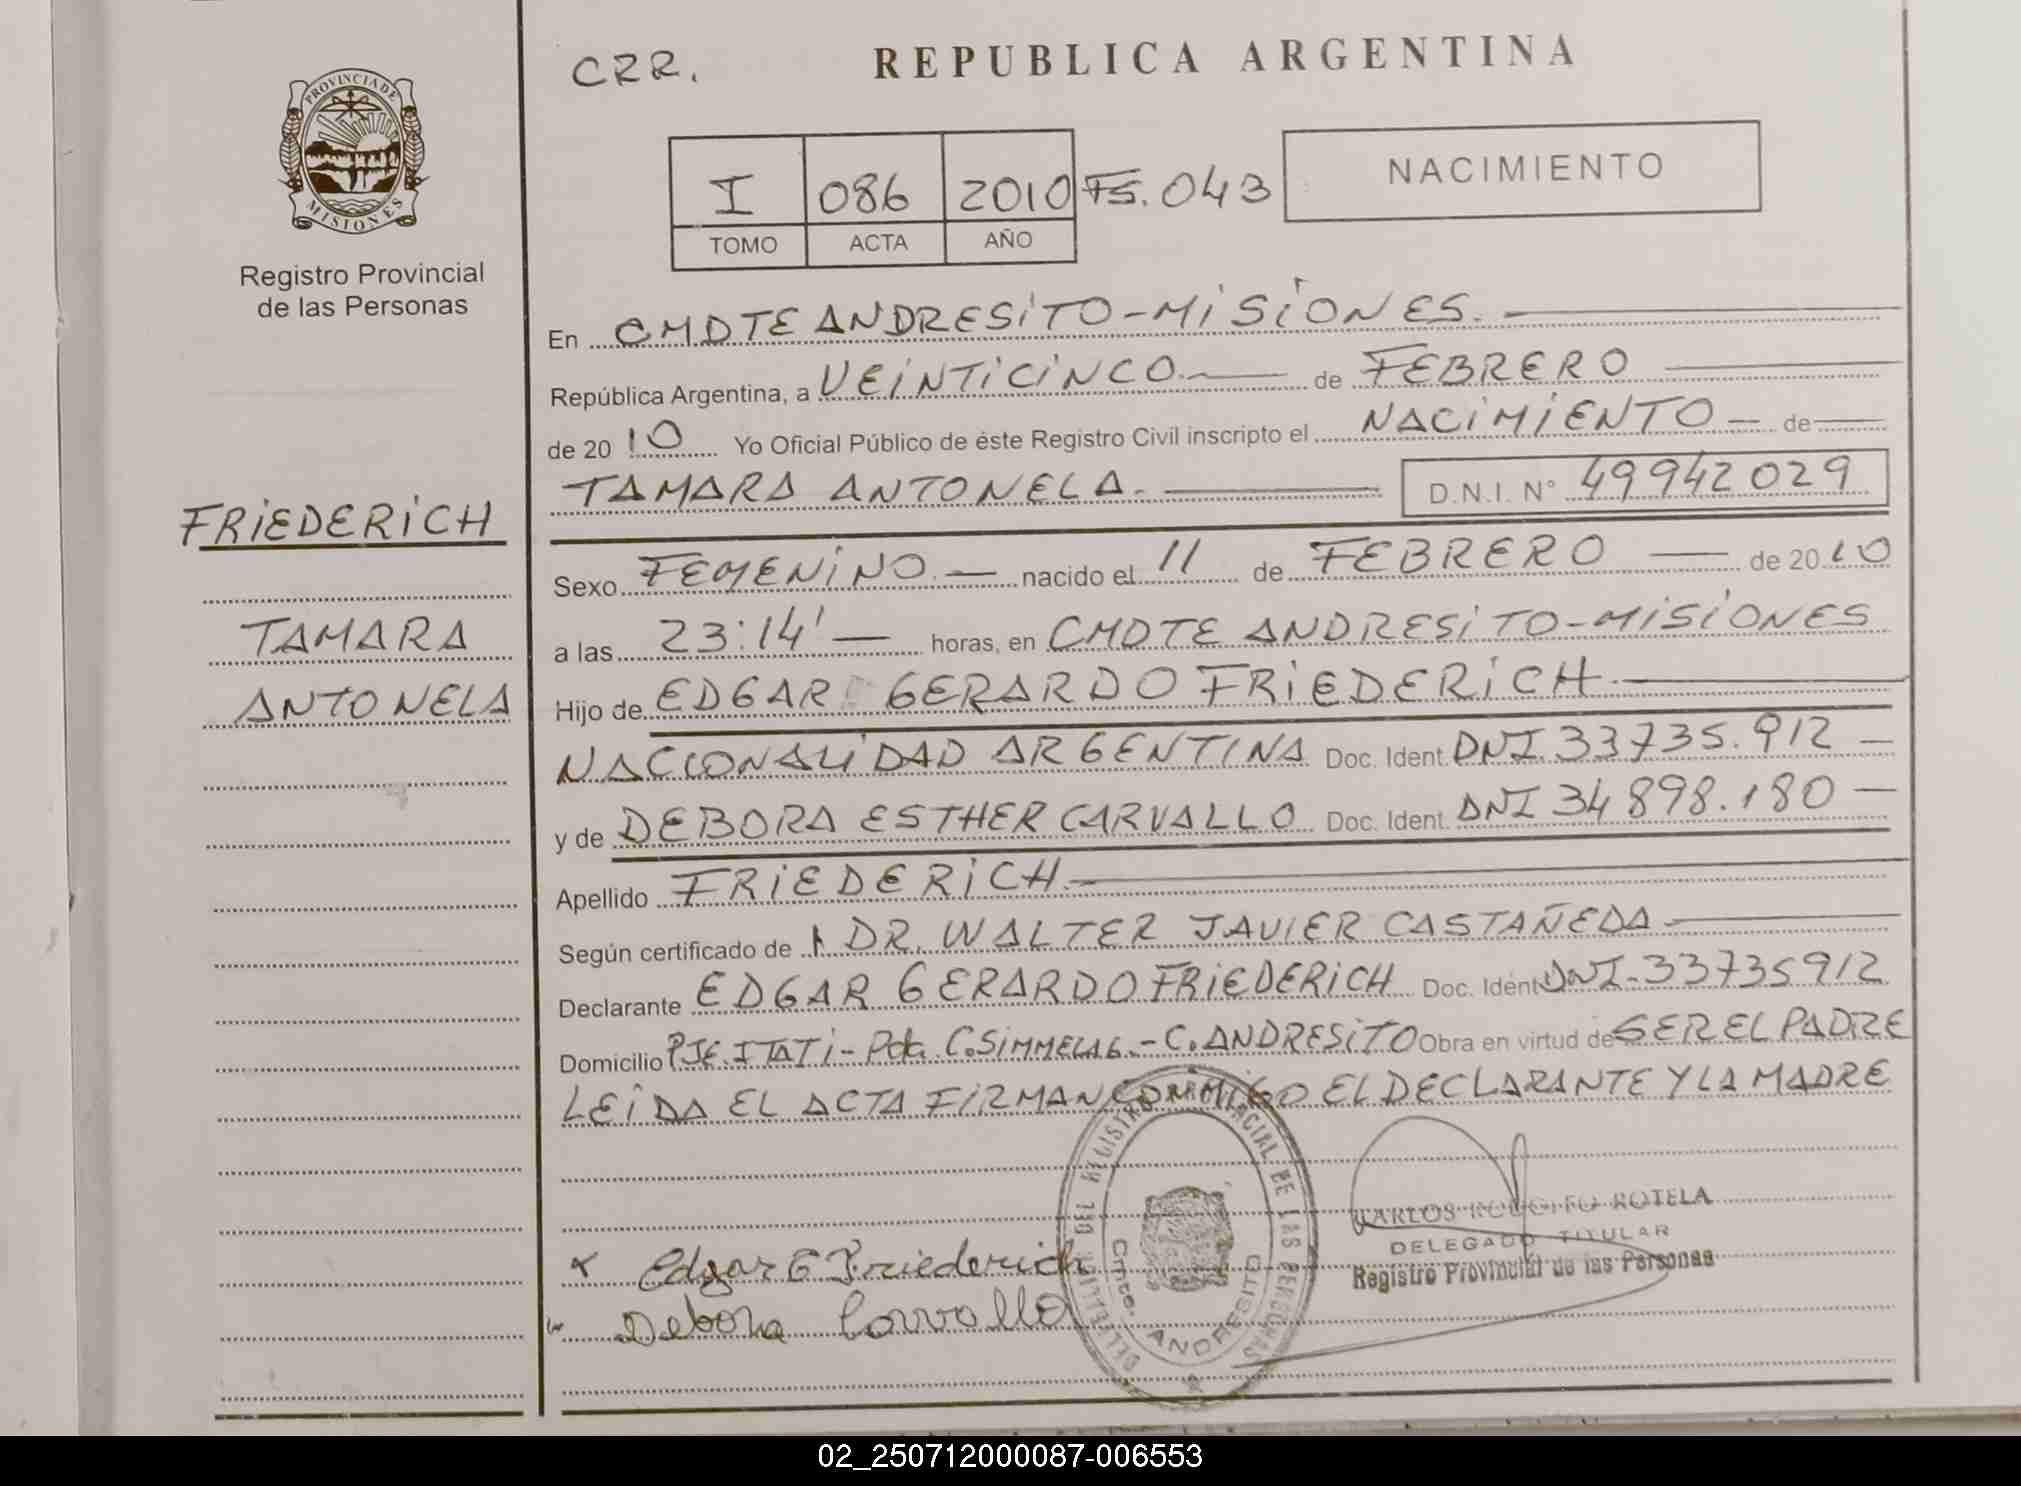 PROVINCIA DE
MISIONES
Registro Provincial
de las Personas
FRIEDERICH
TAMARA
ANTONELA
CRR.
REPUBLICA ARGENTINA
I 086 2010 FS. 043
TOMO ACTA AÑO
NACIMIENTO
En CMDTE ANDRESITO-MISIONES.
República Argentina, a VEINTICINCO de FEBRERO
de 2010 Yo Oficial Público de éste Registro Civil inscripto el NACIMIENTO de
TAMARA ANTONELA. D.N.I. N° 49942029
Sexo FEMENINO nacido el 11 de FEBRERO de 2010
a las 23:14' horas, en CMDTE ANDRESITO-MISIONES
Hijo de EDGAR GERARDO FRIEDERICH
NACIONALIDAD ARGENTINA Doc. Ident. DNI 33735.912
y de DEBORA ESTHER CARVALLO Doc. Ident. DNI 34898.180
Apellido FRIEDERICH
Según certificado de DR. WALTER JAVIER CASTAÑEDA
Declarante EDGAR GERARDO FRIEDERICH Doc. Ident DNI-33735912
Domicilio PJE.ITATI- C. ANDRESITO Obra en virtud de SER EL PADRE
LEIDA EL ACTA FIRMAN CONMIGO EL DECLARANTE Y LA MADRE
Edgar G Friederich
Debora Carvallo
PROVINCIAL DE LAS PERSONAS
Cmte. ANDRESITO
CARLOS RODOLFO ROTELA
DELEGADO TITULAR
Registro Provincial de las Personas
02_250712000087-006553